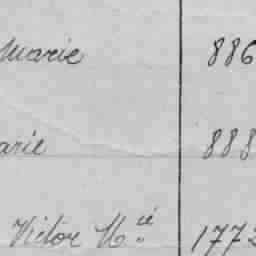 Marie 886
arie 888
Victor M.ié 1772